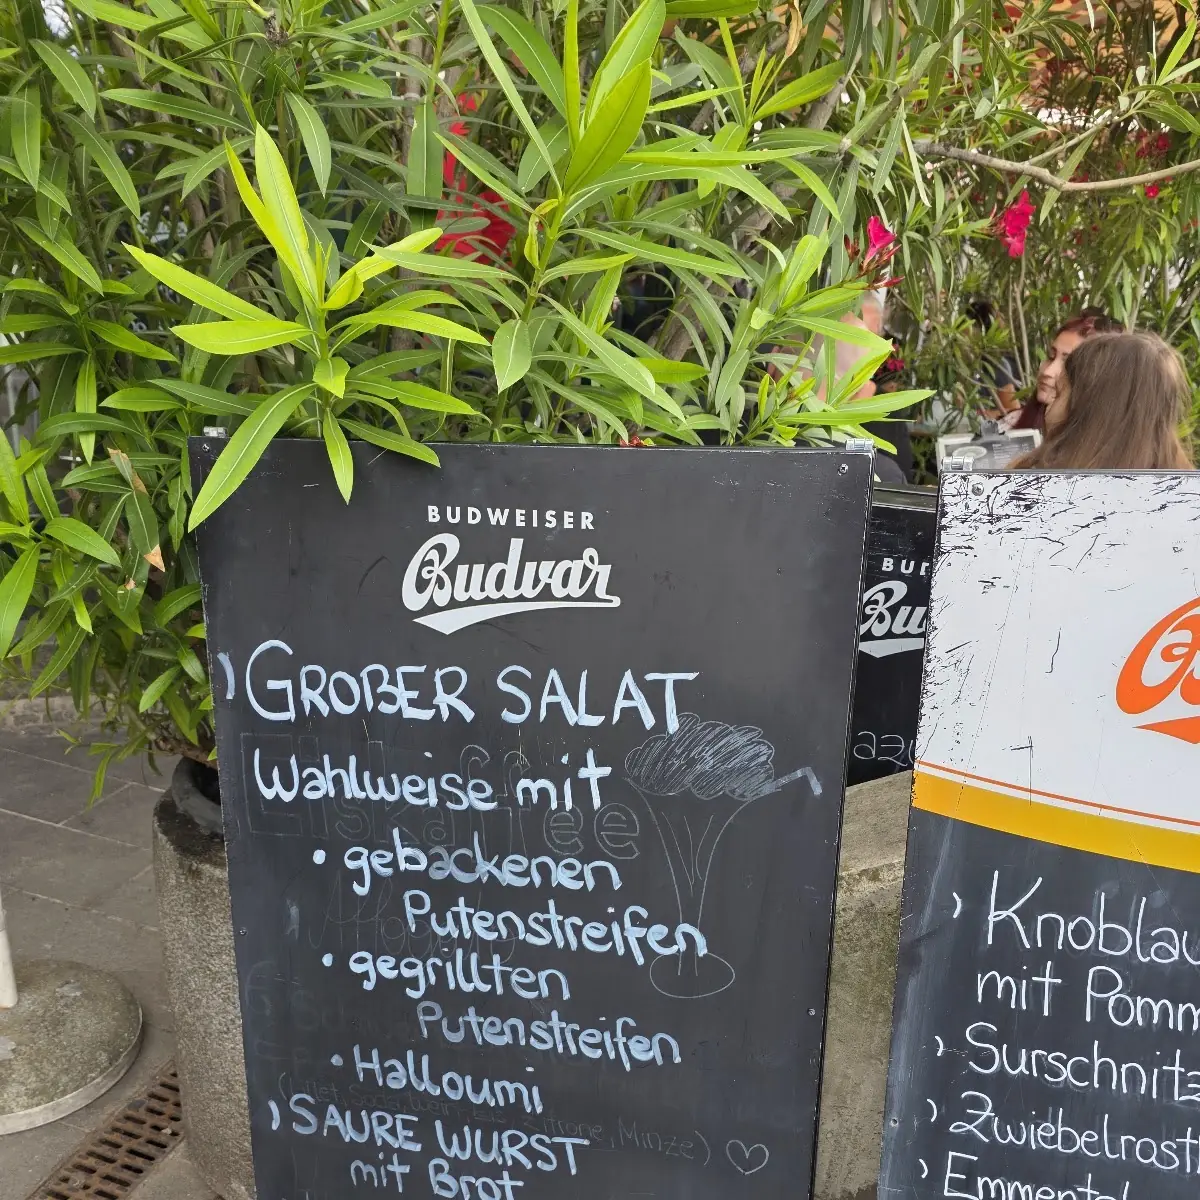 BUDWEISER
Budvar
GROßER SALAT
Wahlweise mit
• gebackenen
Putenstreifen
• gegrillten
Putenstreifen
• Halloumi
SAURE WURST
mit Brot
Eiskaffee
Zitrone, Minze)
BU
Bu
azu
B
Knoblau
mit Pomm
Surschnitz
Zwiebelrost
Emmental